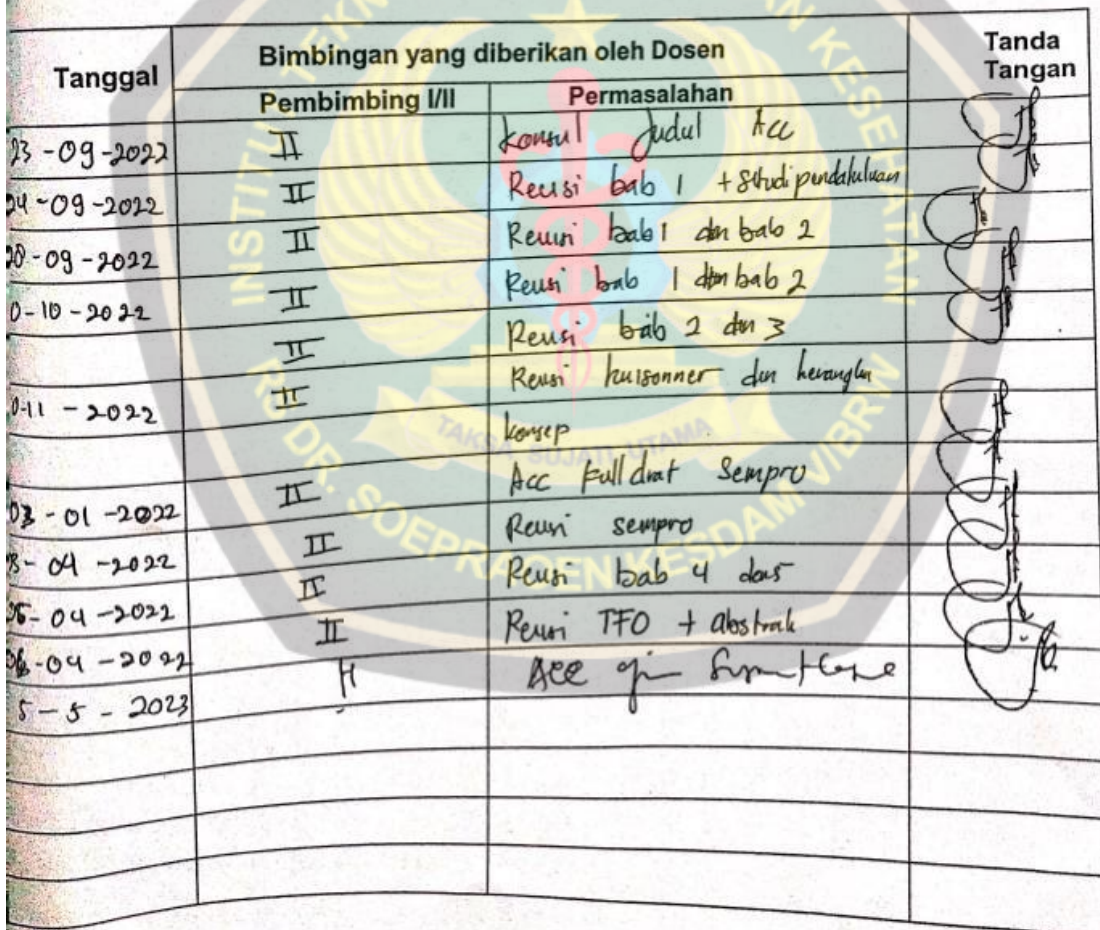 Tanggal
Bimbingan yang diberikan oleh Dosen
Tanda Tangan
Pembimbing I/II
Permasalahan
23-09-2022 II Konsul Judul Acc
24-09-2022 II Revisi bab 1 + Studi pendahuluan
-09-2022 II Revisi bab 1 dan bab 2
0-10-2022 II Revisi bab 1 dan bab 2
II Revisi bab 2 dan 3
-11-2022 II Revisi kuisonner dan kerangka
konsep
-01-2022 II Acc Full drat Sempro
-04-2022 II Revisi sempro
-04-2022 II Revisi bab 4 dan 5
-04-2022 II Revisi TFO + abstrak
5-5-2023 II Acc
INSTITUT TEKN
AN KESEHATAN
RS DR. SOEPRAOEN KESDAM V/BRW
TAKSA SUJATI UTAMA